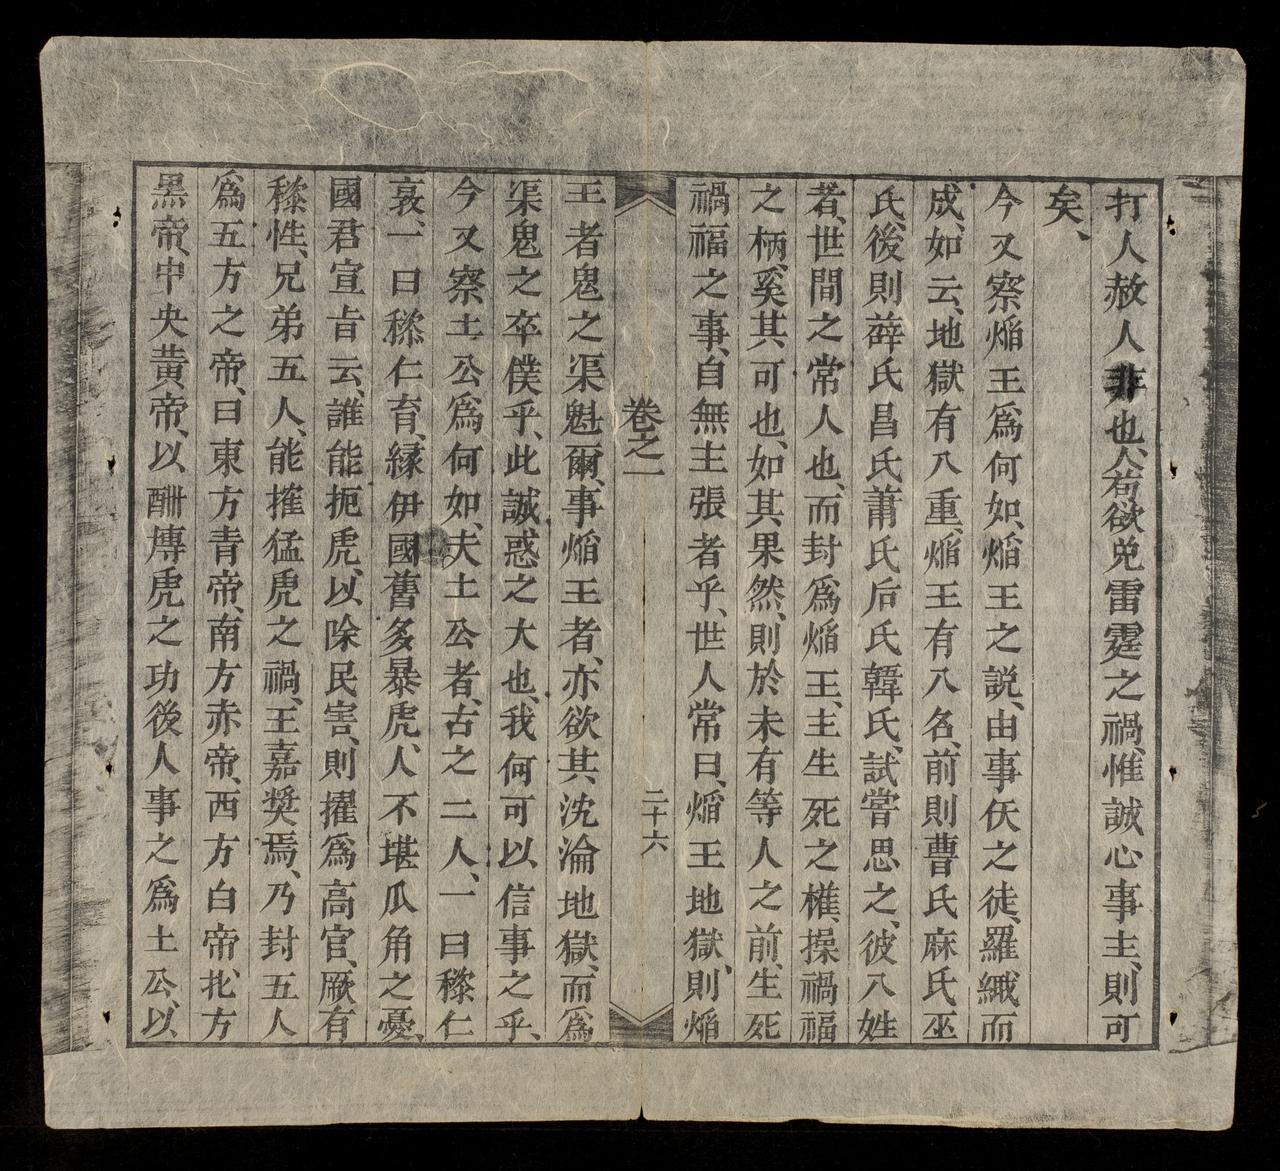 打人赦人非也、人若欲免雷霆之禍、惟誠心事主、則可
矣、
今又察焰王為何如、焰王之説、由事仸之徒、羅織而
成、如云、地獄有八重、焰王有八名、前則曹氏麻氏巫
氏、後則薜氏昌氏蕭氏后氏韓氏、試嘗思之、彼八姓
者、世間之常人也、而封為焰王、主生死之權、操禍福
之柄、奚其可也、如其果然、則於未有等人之前、生死
禍福之事、自無主張者乎、世人常曰、焰王地獄、則焰
卷之一
二十六
王者鬼之渠魁爾、事焰王者、亦欲其沈淪地獄、而為
渠鬼之卒僕乎、此誠惑之大也、我何可以信事之乎、
今又察土公為何如、夫土公者、古之二人、一曰穄仁
哀、一曰穄仁育、緣伊國舊多暴虎、人不堪爪角之憂、
國君宣旨云、誰能扼虎、以除民害、則擢為高官、厥有
穄性、兄弟五人、能摧猛虎之禍、王嘉獎焉、乃封五人
為五方之帝、曰東方青帝、南方赤帝、西方白帝、北方
黑帝、中央黃帝、以酬搏虎之功、後人事之為土公、以